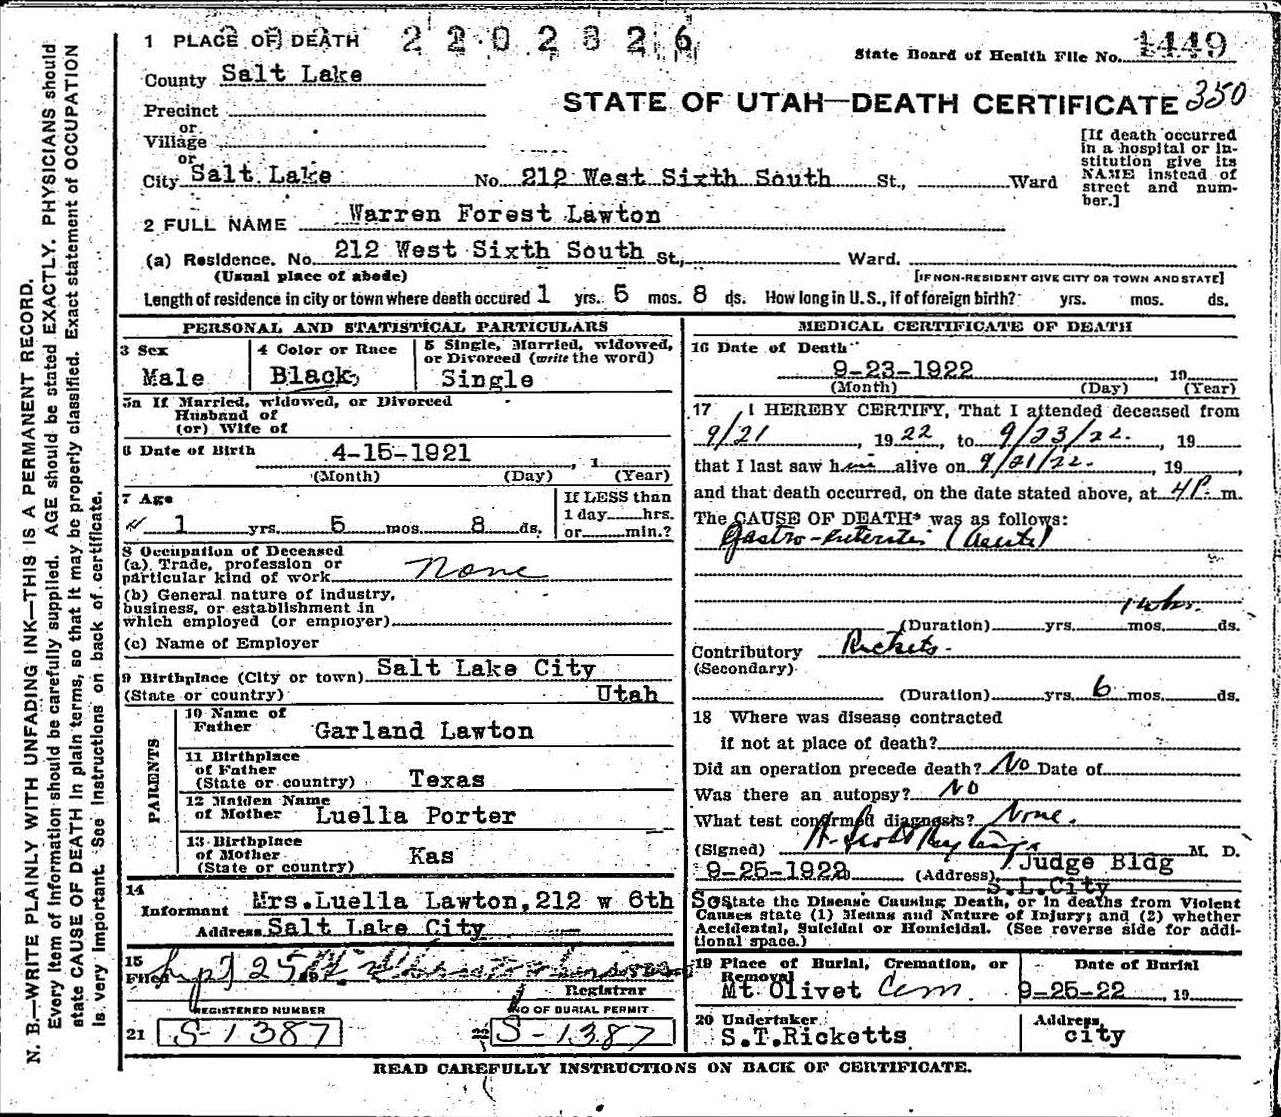 1 PLACE OF DEATH 2202826
State Board of Health File No. 1449
County Salt Lake
STATE OF UTAH—DEATH CERTIFICATE 350
Precinct
or
Village
or
City Salt Lake No. 212 West Sixth South St., Ward
[If death occurred
in a hospital or in-
stitution give its
NAME instead of
street and num-
ber.]
2 FULL NAME Warren Forest Lawton
(a) Residence. No. 212 West Sixth South St., Ward.
(Usual place of abode) [IF NON-RESIDENT GIVE CITY OR TOWN AND STATE]
Length of residence in city or town where death occured 1 yrs. 5 mos. 8 ds. How long in U.S., if of foreign birth? yrs. mos. ds.
PERSONAL AND STATISTICAL PARTICULARS
3 Sex
Male
4 Color or Race
Black
5 Single, Married, widowed,
or Divorced (write the word)
Single
5a If Married, widowed, or Divorced
Husband of
(or) Wife of
6 Date of Birth 4-15-1921, 1
(Month) (Day) (Year)
7 Age
1 yrs. 5 mos. 8 ds.
If LESS than
1 day hrs.
or min.?
8 Occupation of Deceased
(a) Trade, profession or
particular kind of work None
(b) General nature of industry,
business, or establishment in
which employed (or employer)
(c) Name of Employer
9 Birthplace (City or town) Salt Lake City
(State or country) Utah
PARENTS
10 Name of
Father Garland Lawton
11 Birthplace
of Father
(State or country) Texas
12 Maiden Name
of Mother Luella Porter
13 Birthplace
of Mother
(State or country) Kas
14
Informant Mrs.Luella Lawton,212 w 6th
Address Salt Lake City
15
Filed Sept 25
Registrar
REGISTERED NUMBER
21 S-1387
NO OF BURIAL PERMIT
22 S-1387
MEDICAL CERTIFICATE OF DEATH
16 Date of Death
9-23-1922, 19
(Month) (Day) (Year)
17 I HEREBY CERTIFY, That I attended deceased from
9/21, 1922, to 9/23/22., 19
that I last saw him alive on 9/21/22., 19,
and that death occurred, on the date stated above, at 4P. m.
The CAUSE OF DEATH* was as follows:
Gastro-enteritis (Acute)
(Duration) yrs. mos. ds.
Contributory Rickets.
(Secondary)
(Duration) yrs. 6 mos. ds.
18 Where was disease contracted
if not at place of death?
Did an operation precede death? No Date of
Was there an autopsy? No
What test confirmed diagnosis? None.
(Signed) M. D.
9-25-1922 (Address) Judge Bldg
S.L.City
State the Disease Causing Death, or in deaths from Violent
Causes state (1) Means and Nature of Injury; and (2) whether
Accidental, Suicidal or Homicidal. (See reverse side for addi-
tional space.)
19 Place of Burial, Cremation, or
Removal
Mt Olivet Cem
Date of Burial
9-25-22, 19
20 Undertaker
S.T.Ricketts
Address
city
READ CAREFULLY INSTRUCTIONS ON BACK OF CERTIFICATE.
N. B.—WRITE PLAINLY WITH UNFADING INK—THIS IS A PERMANENT RECORD.
Every item of information should be carefully supplied. AGE should be stated EXACTLY. PHYSICIANS should
state CAUSE OF DEATH in plain terms, so that it may be properly classified. Exact statement of OCCUPATION
is very important. See instructions on back of certificate.